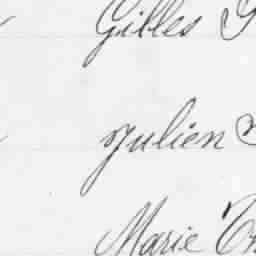 Gilles
Julien
Marie